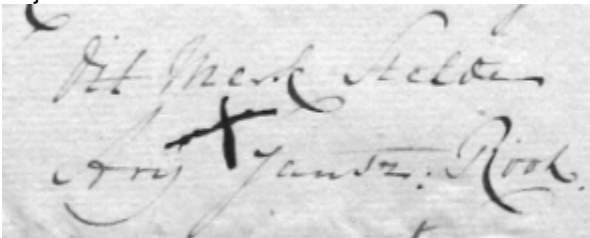 Dit Merk Stelde
Ary Jansz. Rook.